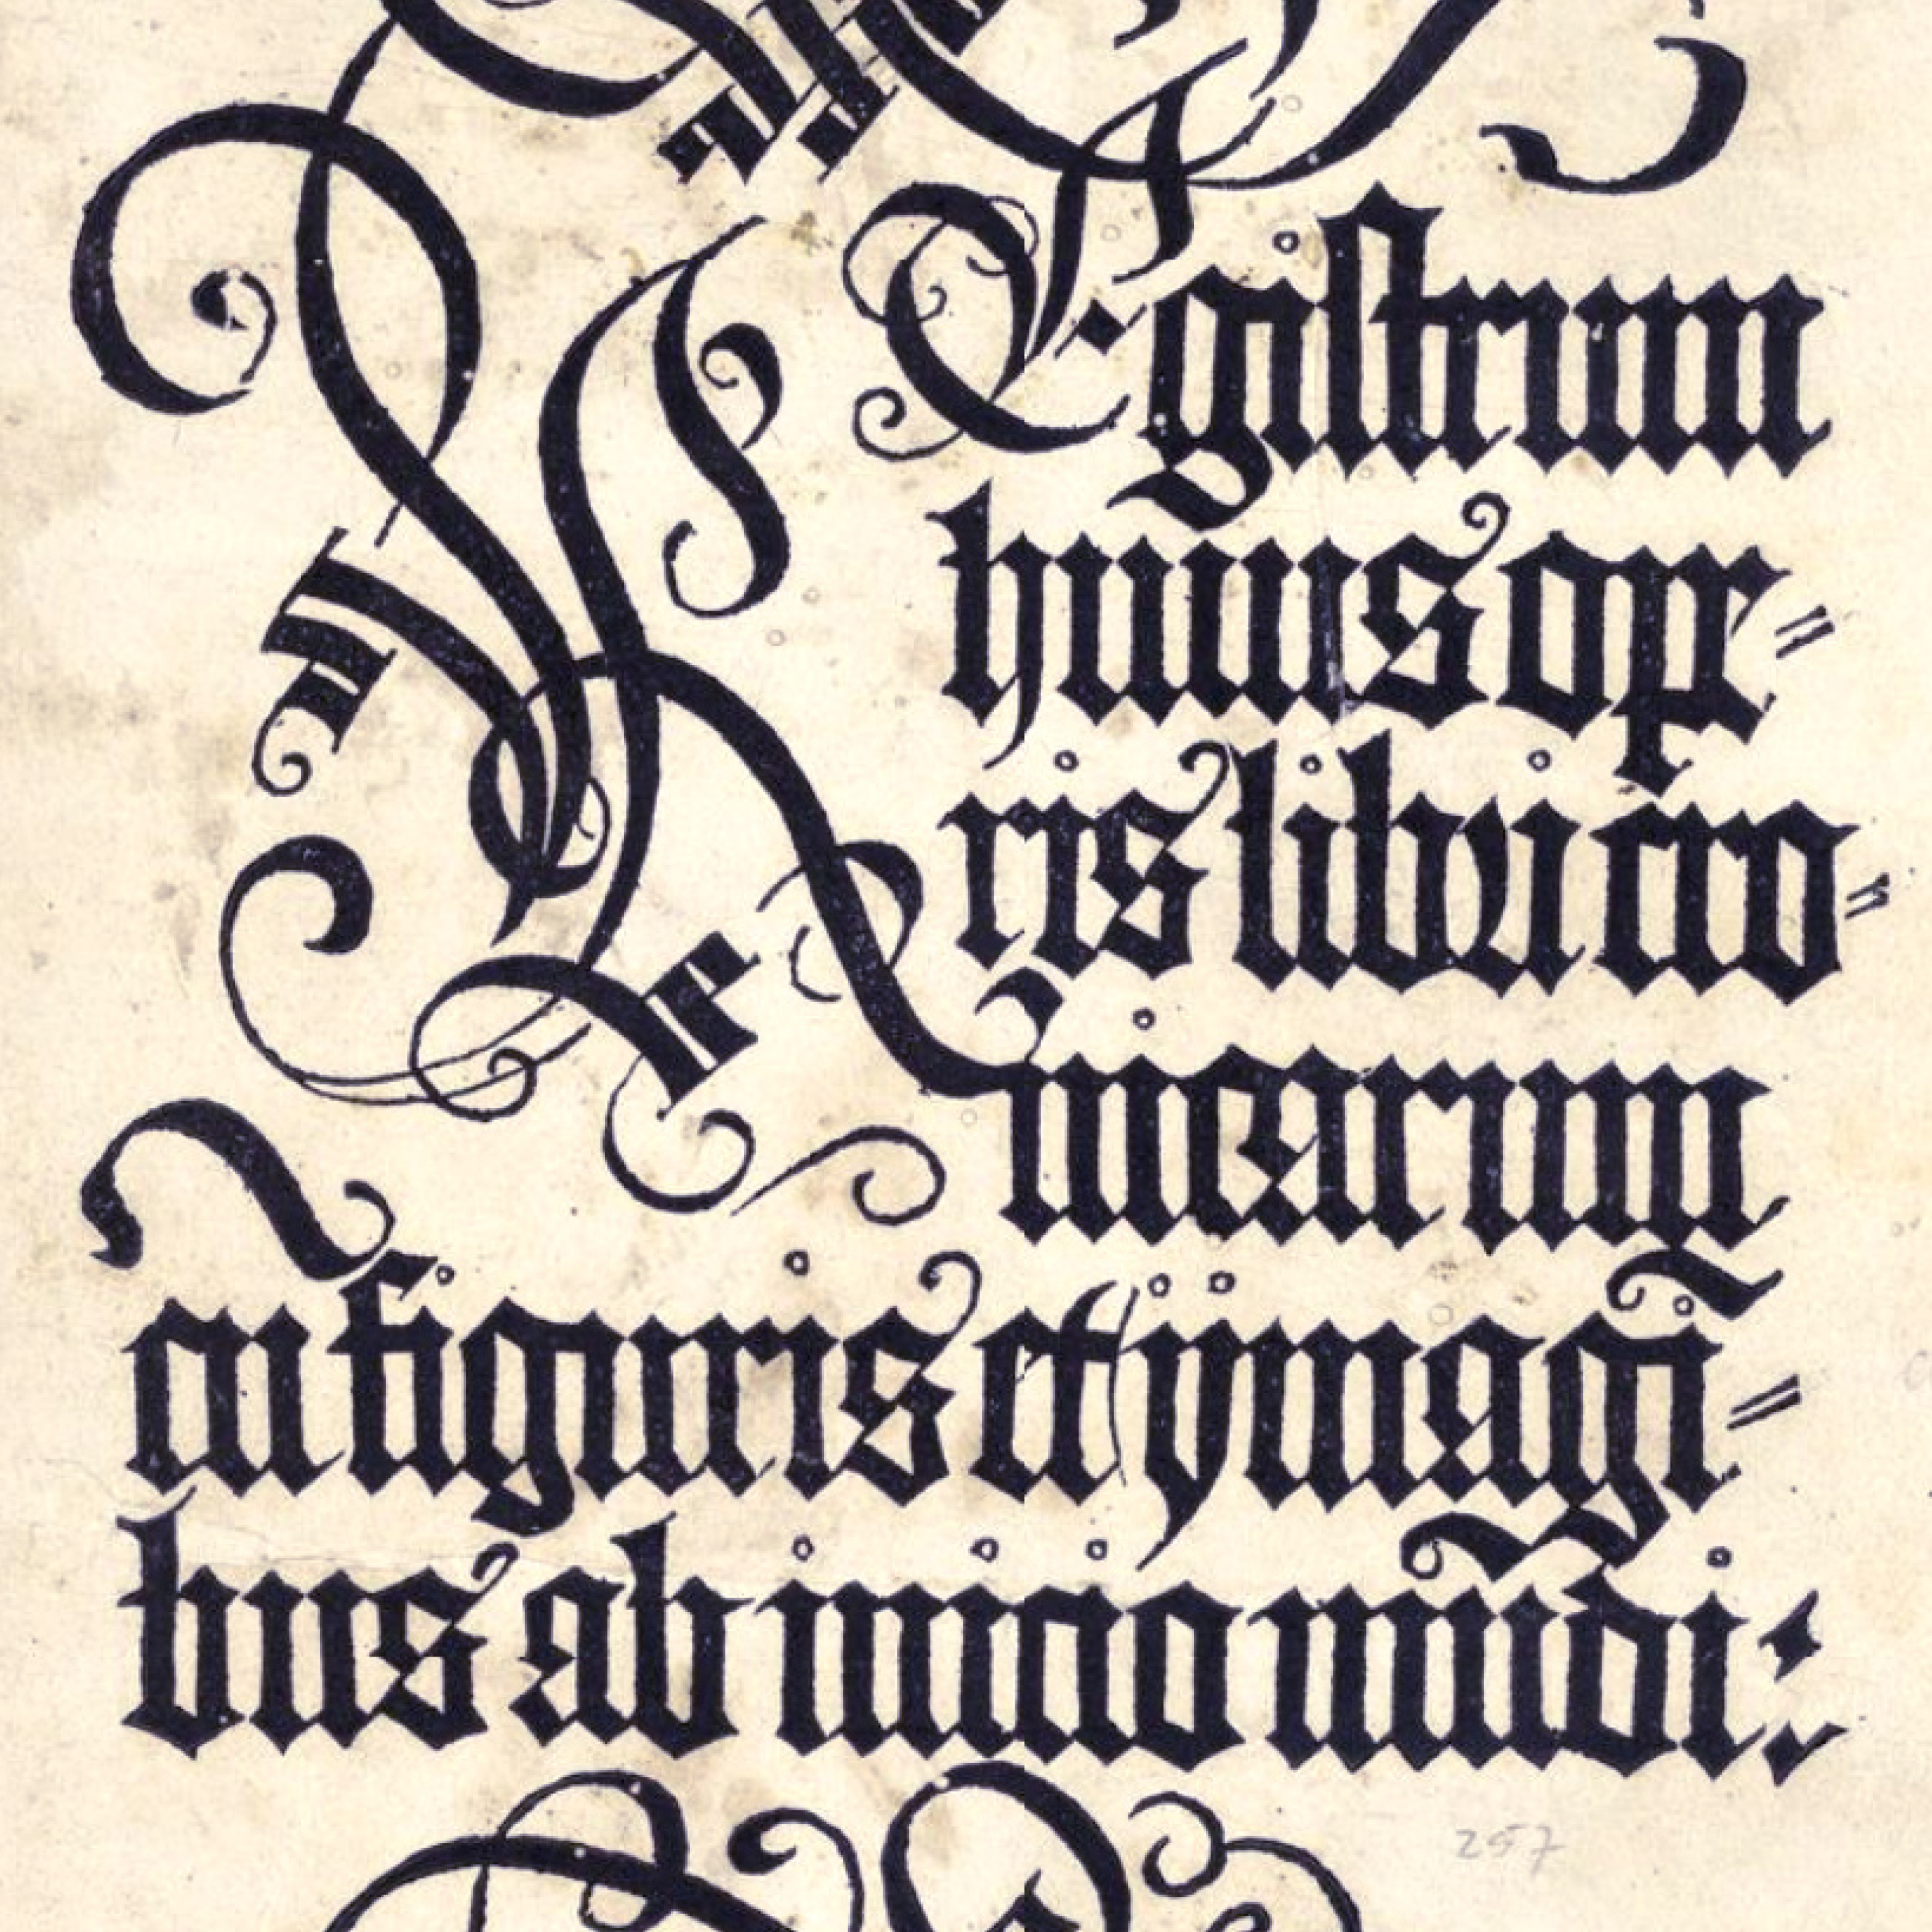 REgistrum
huius ope=
ris libri cro=
nicarum
cu̅ figuris et ÿmagi̅=
bus ab inicio mu̅di:
257